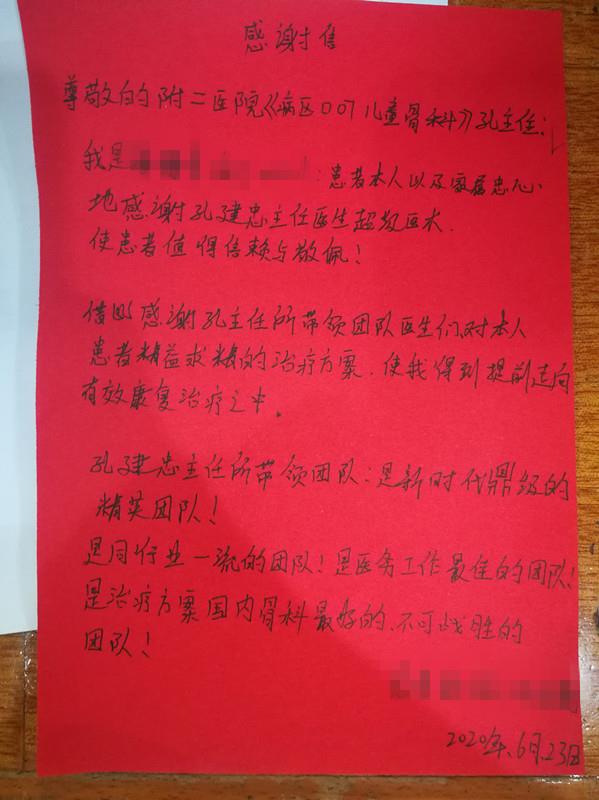 感谢信
尊敬的附二医院《病区007儿童骨科》孔主任：
我是 ：患者本人以及家属忠心
地感谢孔建忠主任医生超级医术
使患者值得信赖与敬佩！
借此感谢孔主任所带领团队医生们对本人
患者精益求精的治疗方案、使我得到提前走向
有效康复治疗之中。
孔建忠主任所带领团队：是新时代鼎级的
精英团队！
是同行业一流的团队！是医务工作最佳的团队！
是治疗方案国内骨科最好的、不可战胜的
团队！
2020年、6月、23日